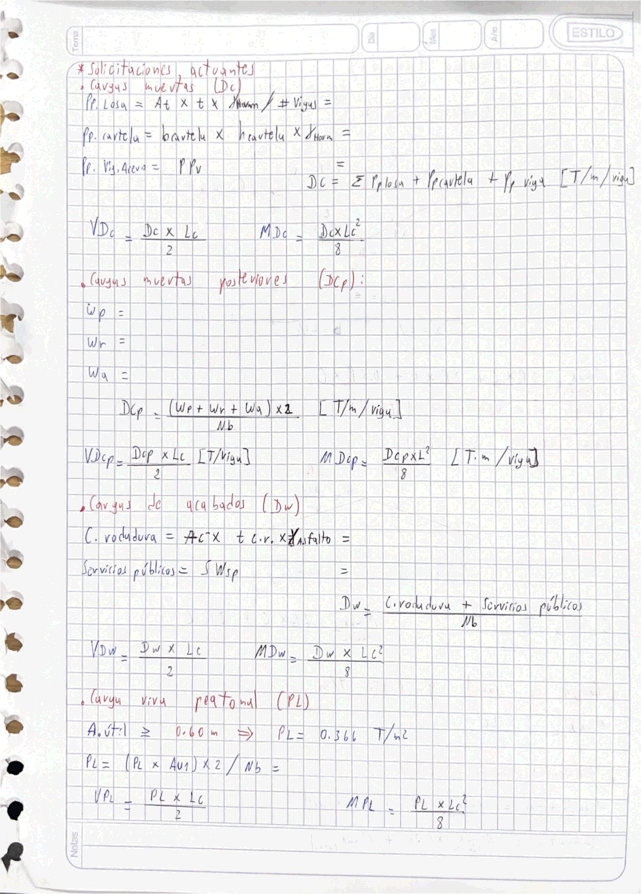 Tema
Dia
Mes
Año
ESTILO
* Solicitaciones actuantes
. Cargas muertas (Dc)
Pp. Losa = At x t x γHorm / # Vigas =
Pp. cartela = bcartela x hcartela x γHorm =
Pp. Vig. Acera = PPv =
DC = Σ Pplosa + Ppcartela + Pp viga [T/m/viga]
VDc = Dc x Lc / 2 MDc = Dc x Lc² / 8
. Cargas muertas posteriores (DCp):
Wp =
Wr =
Wa =
DCp = (Wp + Wr + Wa) x 2 / Nb [T/m/viga]
VDcp = Dcp x Lc / 2 [T/viga] MDcp = Dcp x L² / 8 [T.m/viga]
. Cargas de acabados (Dw)
C. rodadura = Ac x t c.r. x γAsfalto =
Servicios públicos = S Wsp =
Dw = C. rodadura + Servicios públicos / Nb
VDw = Dw x Lc / 2 MDw = Dw x Lc² / 8
. Carga viva peatonal (PL)
A. útil ≥ 0.60 m ⇒ PL = 0.366 T/m²
PL = (PL x Au1) x 2 / Nb =
VPL = PL x Lc / 2 MPL = PL x Lc² / 8
Notas